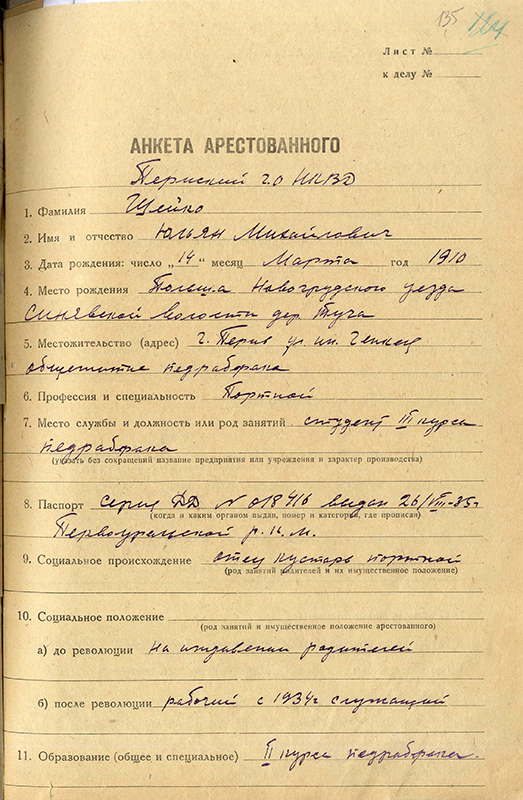 135
Лист №
к делу №
АНКЕТА АРЕСТОВАННОГО
Пермский г.о НКВД
1. Фамилия Шейко
2. Имя и отчество Юльян Михайлович
3. Дата рождения: число „14“ месяц Марта год 1910
4. Место рождения Польша Новогрудского уезда
Синявской волости дер. Туча
5. Местожительство (адрес) г. Пермь ул. им.
общежитие педрабфака
6. Профессия и специальность Портной
7. Место службы и должность или род занятий студент III курса
педрабфака
(указать без сокращений название предприятия или учреждения и характер производства)
8. Паспорт серия ДД N 018416 выдан 26/VIII-35г
(когда и каким органом выдан, номер и категория, где прописан)
Первоуральской р. к. м.
9. Социальное происхождение отец кустарь портной
(род занятий родителей и их имущественное положение)
10. Социальное положение
(род занятий и имущественное положение арестованного)
а) до революции на иждивении родителей
б) после революции рабочий с 1934г служащий
11. Образование (общее и специальное) II курса педрабфака.